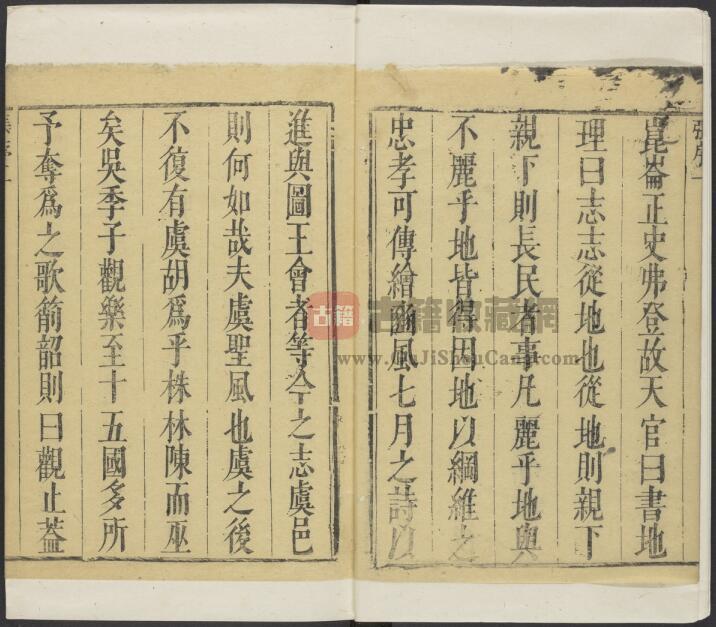 張序一
崑崙正史弗登故天官曰書地
理曰志志從地也從地則親下
親下則長民者事凡麗乎地與
不麗乎地皆得因地以綱維之
忠孝可傳繪豳風七月之詩以
進與圖王會者等今之志虞邑
則何如哉夫虞聖風也虞之後
不復有虞胡爲乎株林陳而巫
矣吳季子觀樂至十五國多所
予奪爲之歌箾韶則曰觀止蓋
張序二
古籍
古籍收藏網
www.GuJiShouCang.com